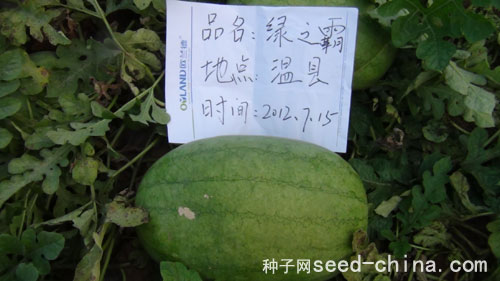 品名:绿之霸
地点:温县
时间:2012.7.15
OMLAND欧兰德
种子网seed-china.com